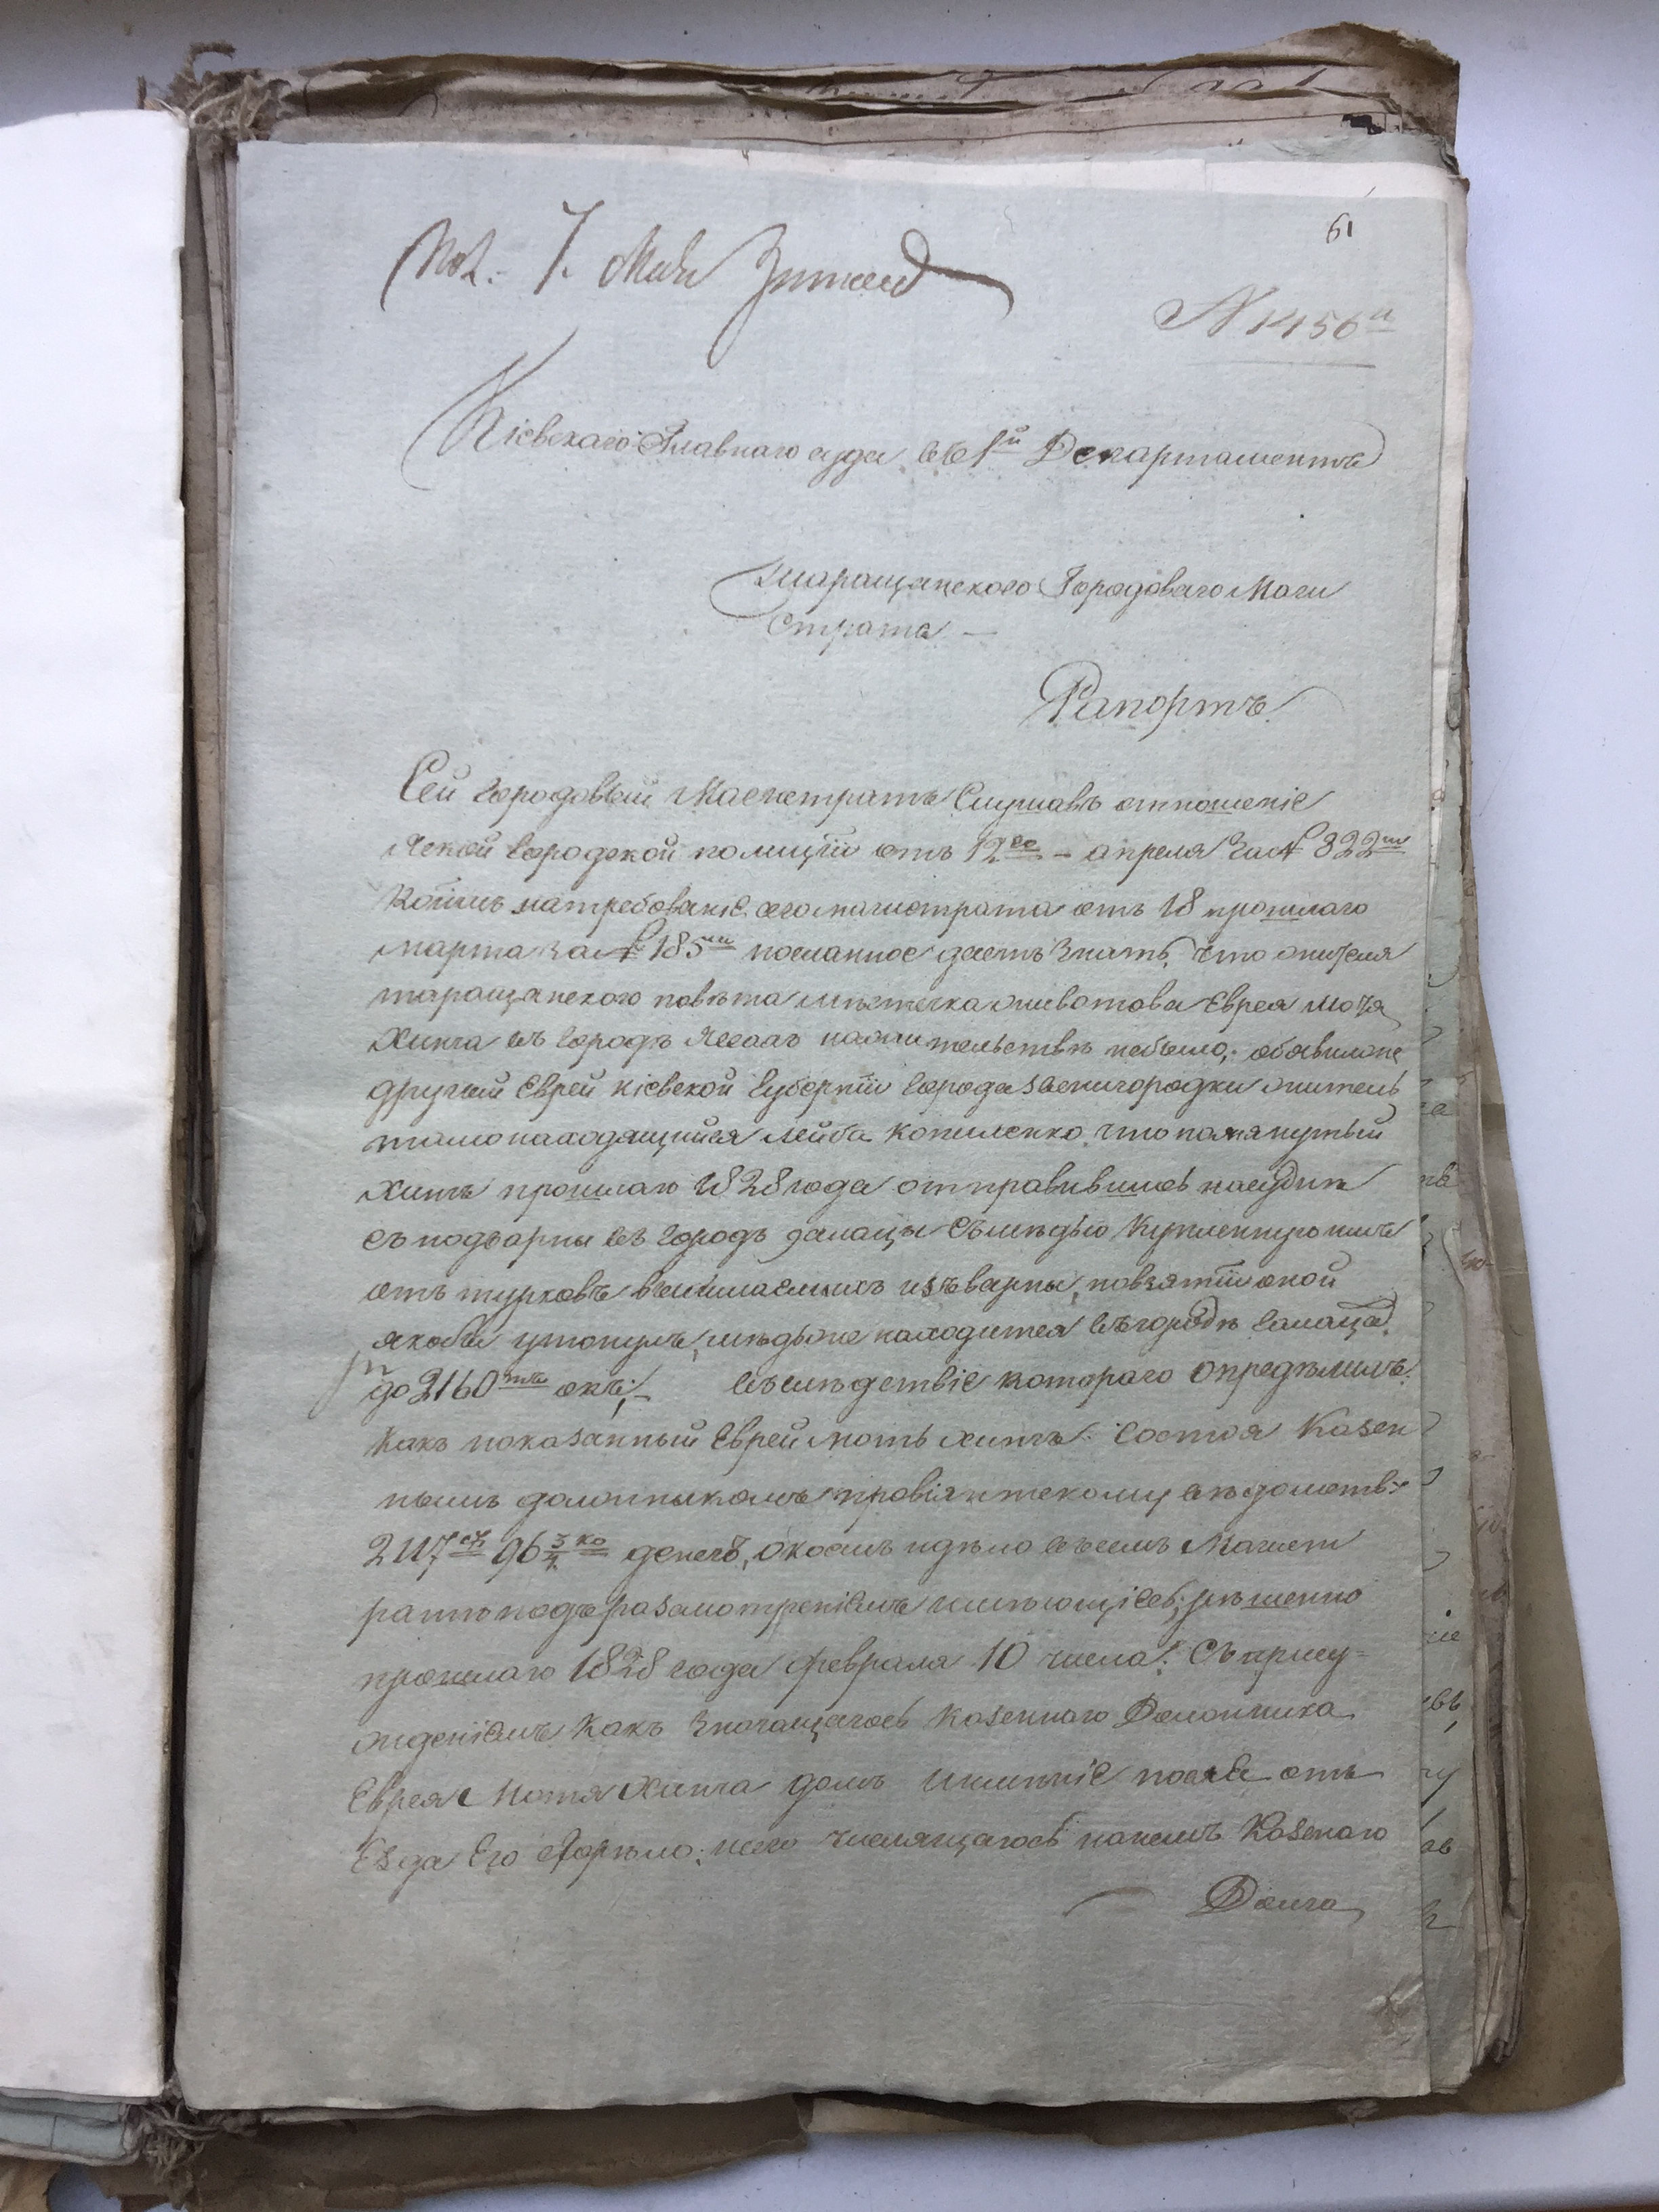 61
Пол. 7. Мая
N 1456й
Кіевскаго Главнаго суда въ 1й Департаментъ
Таращанского Городоваго Маги
страта —
Рапортъ
Сей Городовый Магистратъ Слушавъ отношеніе
Яской Городской полиціи отъ 12го – апреля За № 322мъ
Коимъ на требованіе сего магистрата отъ 18 прошлаго
марта за № 185мъ посланное даетъ Знать, что жителя
таращанского повѣта мѣстечка животова Еврея Мотя
Хипча въ Городѣ Яссахъ на жительствѣ небыло; обявилъ же
другий Еврей кіевской Губерніи Города звенигородки житель
тамо находящийся Лейба Копиленко что помянутый
прошлаго 1828 года отправившись на суднѣ
съ подварны въ Городъ Галацы съ мѣдью Купленную имъ
отъ турковъ изъ варны, повзятіи оной
якобы утонулъ, мѣдь же находится въ городѣ Галаца
до 2160ть окъ; – въ слѣдствіе котораго Опредѣлилъ:
Какъ показанный Еврей Моть состоя Казен
нымъ должныкомъ провіянтскому вѣдомств:
2117ру 96 3/4 ко денегъ, о коемъ и дѣло въ семъ Магист
ратѣ подъ разсмотреніемъ имѣющіесь, рѣшенно
прошлаго 1828 года февраля 10 числа: Съ прису=
жденіемъ Какъ Значащагось Казенного Должника
Еврея Мотя Хипча домъ и имѣніе после отъ
Езда Его сгорѣло; него числящагось на немъ Казенаго
Долга